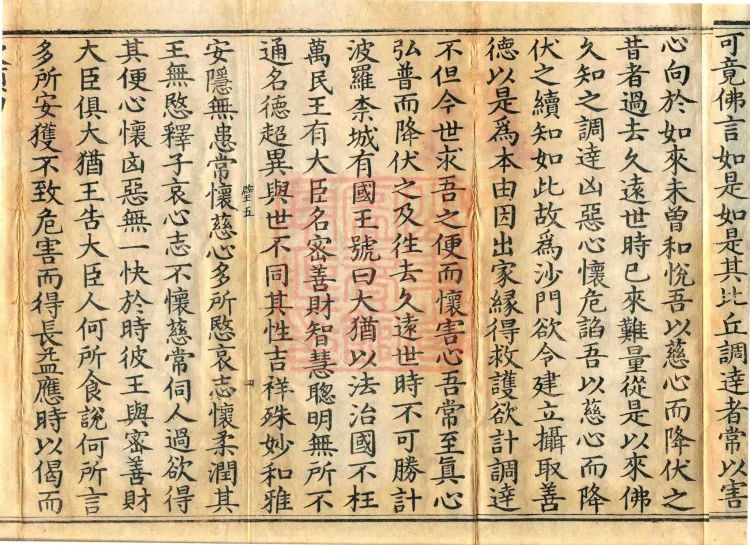 可竟佛言如是如是其比丘調達者常以害
心向於如來未曾和悅吾以慈心而降伏之
昔者過去久遠世時已來難量從是以來佛
久知之調達凶惡心懷危諂吾以慈心而降
伏之續知如此故為沙門欲令建立攝取善
德以是為本由因出家緣得救護欲計調達
不但今世求吾之便而懷害心吾常至真心
弘普而降伏之及往去久遠世時不可勝計
波羅柰城有國王號曰大猶以法治國不枉
萬民王有大臣名密善財智慧聰明無所不
通名德超異與世不同其性吉祥殊妙和雅
安隱無患常懷慈心多所愍哀志懷柔潤其
王無愍釋子哀心志不懷慈常伺人過欲得
其便心懷凶惡無一快於時彼王與密善財
大臣俱大猶王告大臣人何所食說何所言
多所安獲不致危害而得長益應時以偈而